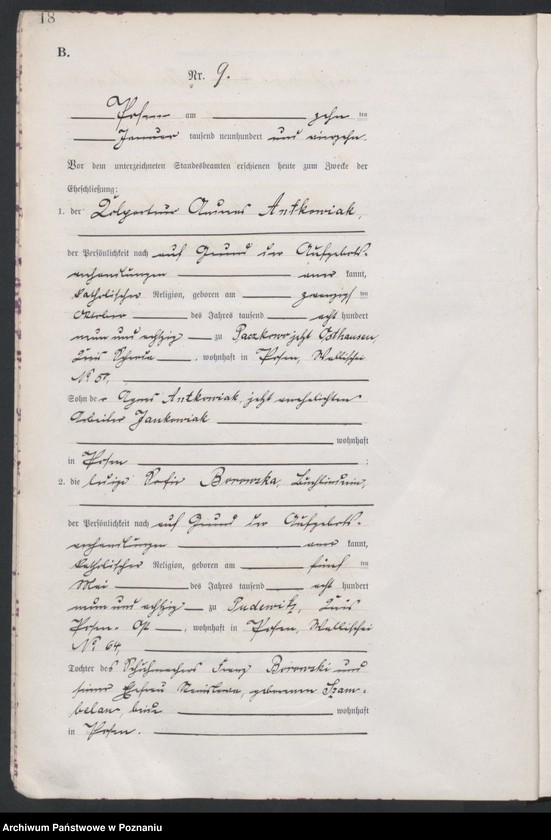 18
B.
Nr. 9.
Posen am zehn ten
Januar tausend neunhundert und vierzehn.
Vor dem unterzeichneten Standesbeamten erschienen heute zum Zwecke der
Eheschließung:
1. der Kolporteur Antkowiak,
der Persönlichkeit nach auf Grund der Aufgebots-
verhandlungen aner kannt,
katholischer Religion, geboren am zwanzigsten
Oktober des Jahres tausend acht hundert
neun und achtzig zu Paczkowo jetzt Osthausen,
Kreis Schroda, wohnhaft in Posen, Wallischei
No 57,
Sohn der Agnes Antkowiak, jetzt verehelichten
Arbeiter Jankowiak
wohnhaft
in Posen ;
2. die ledige Sofie Borowska, Buchbinderin,
der Persönlichkeit nach auf Grund der Aufgebots-
verhandlungen aner kannt,
katholischer Religion, geboren am fünf ten
Mai des Jahres tausend acht hundert
neun und achtzig zu Pudewitz, Kreis
Posen-Ost, wohnhaft in Posen, Wallischei
No 64,
Tochter des Schuhmachers Franz Borowski und
seiner Ehefrau geborenen Szam-
belan, beide wohnhaft
in Posen.
Archiwum Państwowe w Poznaniu